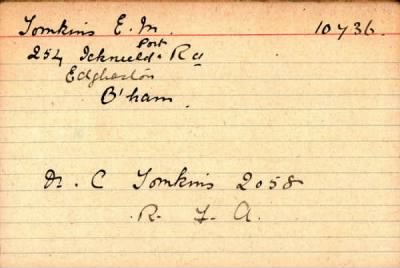 Tomkins E. M. 10736.
254 Icknield Port Rd
Edgbaston
B'ham.
Dr. C Tomkins 2058
R. F. A.